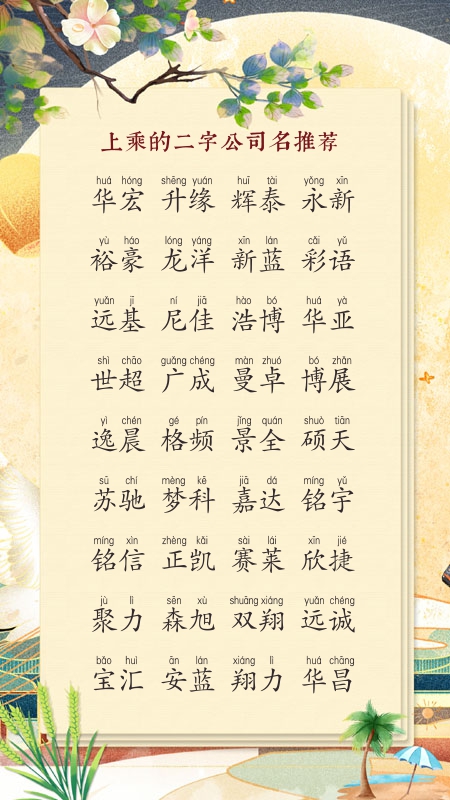 上乘的二字公司名推荐
huá hóng shēng yuán huī tài yǒng xīn
华宏 升缘 辉泰 永新
yù háo lóng yáng xīn lán cǎi yǔ
裕豪 龙洋 新蓝 彩语
yuǎn jī ní jiā hào bó huá yà
远基 尼佳 浩博 华亚
shì chāo guǎng chéng màn zhuó bó zhǎn
世超 广成 曼卓 博展
yì chén gé pín jǐng quán shuò tiān
逸晨 格频 景全 硕天
sū chí mèng kē jiā dá míng yǔ
苏驰 梦科 嘉达 铭宇
míng xìn zhèng kǎi sài lái xīn jié
铭信 正凯 赛莱 欣捷
jù lì sēn xù shuāng xiáng yuǎn chéng
聚力 森旭 双翔 远诚
bǎo huì ān lán xiáng lì huá chāng
宝汇 安蓝 翔力 华昌